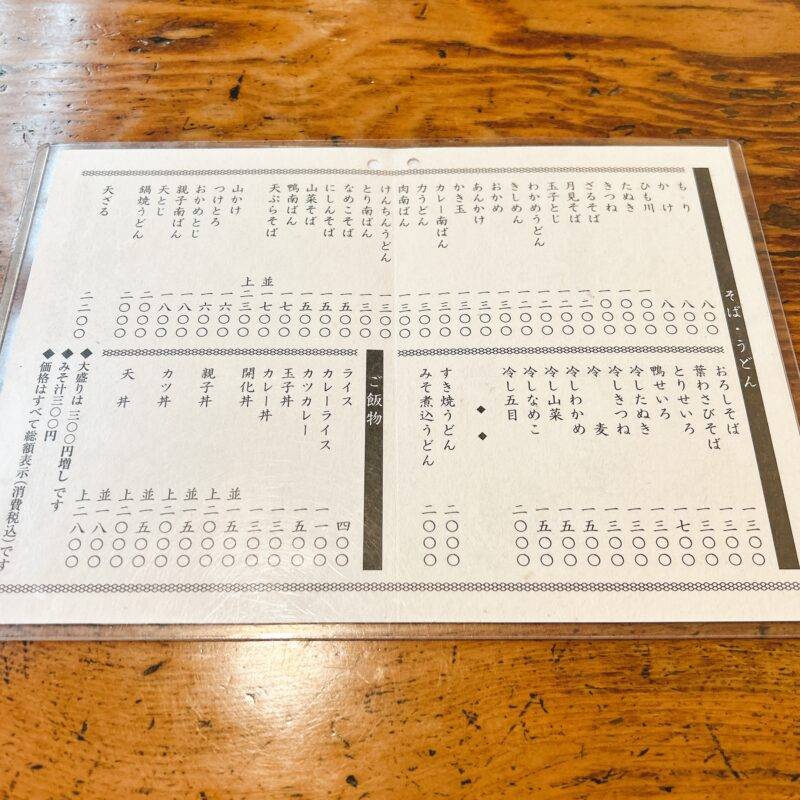 そば・うどん
もり 八〇〇
かけ 八〇〇
ひも川 八〇〇
たぬき 一〇〇〇
きつね 一〇〇〇
ざるそば 一〇〇〇
月見そば 一二〇〇
玉子とじ 一二〇〇
わかめうどん 一二〇〇
きしめん 一二〇〇
おかめ 一三〇〇
あんかけ 一三〇〇
かき玉 一三〇〇
カレー南ばん 一三〇〇
力うどん 一三〇〇
肉南ばん 一三〇〇
けんちんうどん 一三〇〇
とり南ばん 一三〇〇
なめこそば 一五〇〇
にしんそば 一五〇〇
山菜そば 一五〇〇
鴨南ばん 一七〇〇
天ぷらそば 並 一七〇〇
上 二三〇〇
山かけ 一六〇〇
つけとろ 一六〇〇
おかめとじ 一八〇〇
親子南ばん 一八〇〇
天とじ 二〇〇〇
鍋焼うどん 二〇〇〇
天ざる 二二〇〇
おろしそば 一三〇〇
葉わさびそば 一三〇〇
とりせいろ 一三〇〇
鴨せいろ 一七〇〇
冷したぬき 一三〇〇
冷しきつね 一三〇〇
冷麦 一三〇〇
冷しわかめ 一五〇〇
冷し山菜 一五〇〇
冷しなめこ 一五〇〇
冷し五目 二〇〇〇
◆ ◆
すき焼うどん 二〇〇〇
みそ煮込うどん 二〇〇〇
ご飯物
ライス 四〇〇
カレーライス 一一〇〇
カツカレー 一五〇〇
玉子丼 一三〇〇
カレー丼 一三〇〇
開化丼 並 一五〇〇
上 二〇〇〇
親子丼 並 一五〇〇
上 二〇〇〇
カツ丼 並 一五〇〇
上 二〇〇〇
天丼 並 一八〇〇
上 二八〇〇
◆大盛りは三〇〇円増しです
◆みそ汁三〇〇円
◆価格はすべて総額表示(消費税込)です